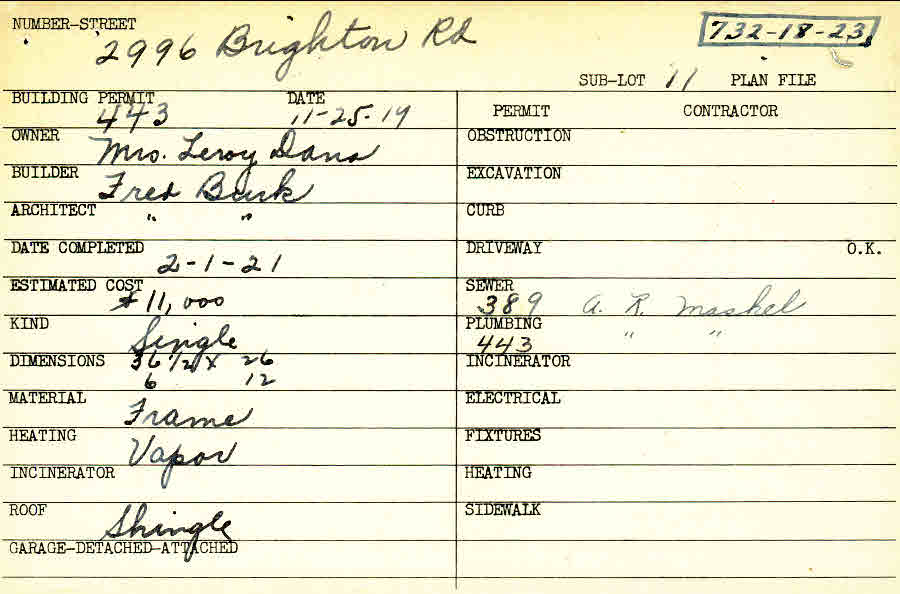 NUMBER-STREET
2996 Brighton Rd
732-18-23
SUB-LOT 11 PLAN FILE
BUILDING PERMIT 443 DATE 11-25-19
PERMIT CONTRACTOR
OWNER Mrs. Leroy Dana
OBSTRUCTION
BUILDER Fred Burk
EXCAVATION
ARCHITECT " "
CURB
DATE COMPLETED 2-1-21
DRIVEWAY O.K.
ESTIMATED COST $11,000
SEWER 389 A. R. Maskel
KIND Single
PLUMBING 443 " "
DIMENSIONS 36 1/2 x 26
6 12
INCINERATOR
MATERIAL Frame
ELECTRICAL
HEATING Vapor
FIXTURES
INCINERATOR
HEATING
ROOF Shingle
SIDEWALK
GARAGE-DETACHED-ATTACHED